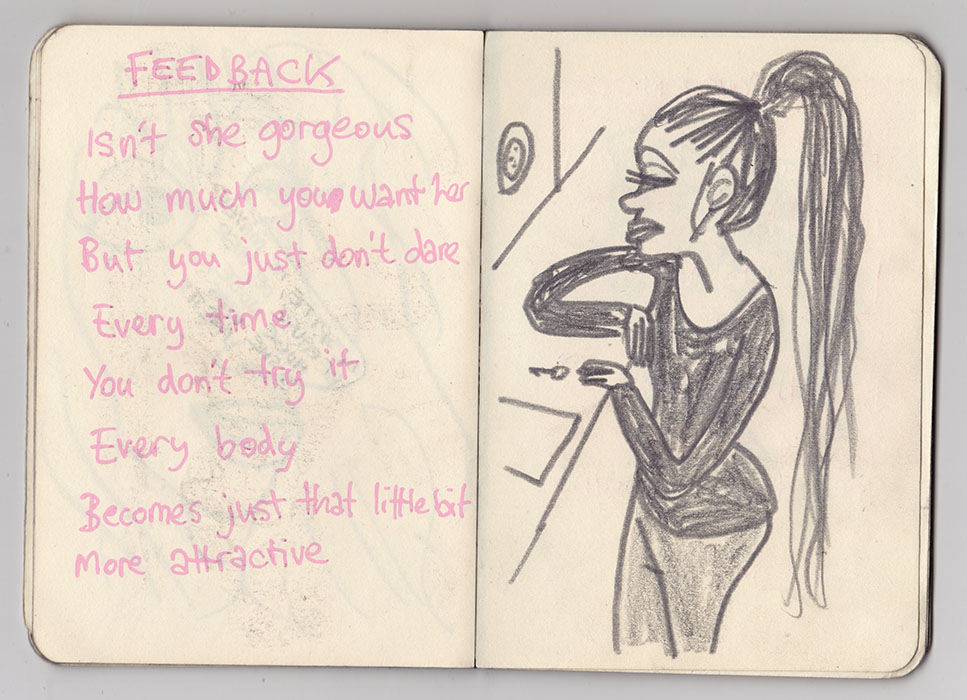 FEEDBACK
Isn't she gorgeous
How much you want her
But you just don't dare
Every time
You don't try it
Every body
Becomes just that little bit
More attractive